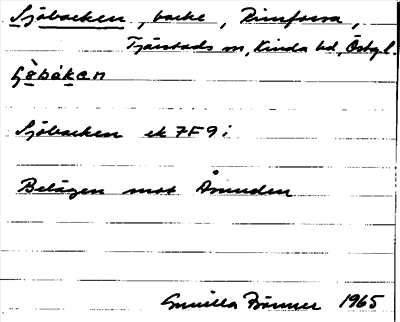 Sjöbacken, backe, Rimforsa,
Tjärstads sn, Kinda hd, Östgl.
Sjöbacken ek 7F9i
Belägen mot Åsunden
Gunilla 1965